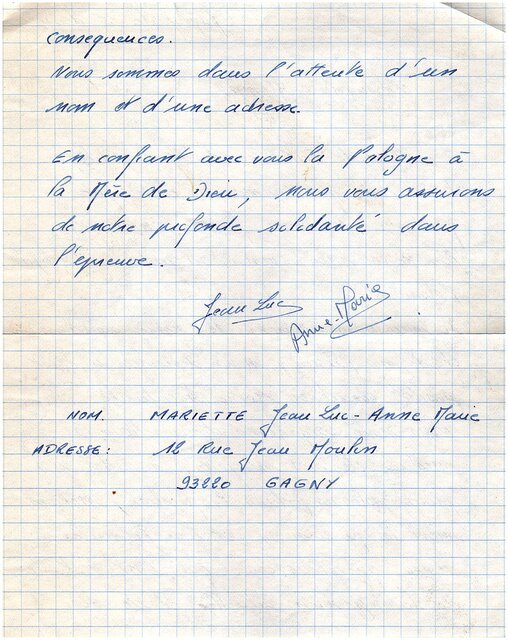 consequences.
Nous sommes dans l'attente d'un
nom et d'une adresse.
En confiant avec vous la Pologne à
la Mère de Dieu, nous vous assurons
de notre profonde solidarité dans
l'épreuve.
Jean Luc
Anne-Marie
NOM. MARIETTE Jean Luc - Anne Marie
ADRESSE: 12 Rue Jean Moulin
93220 GAGNY